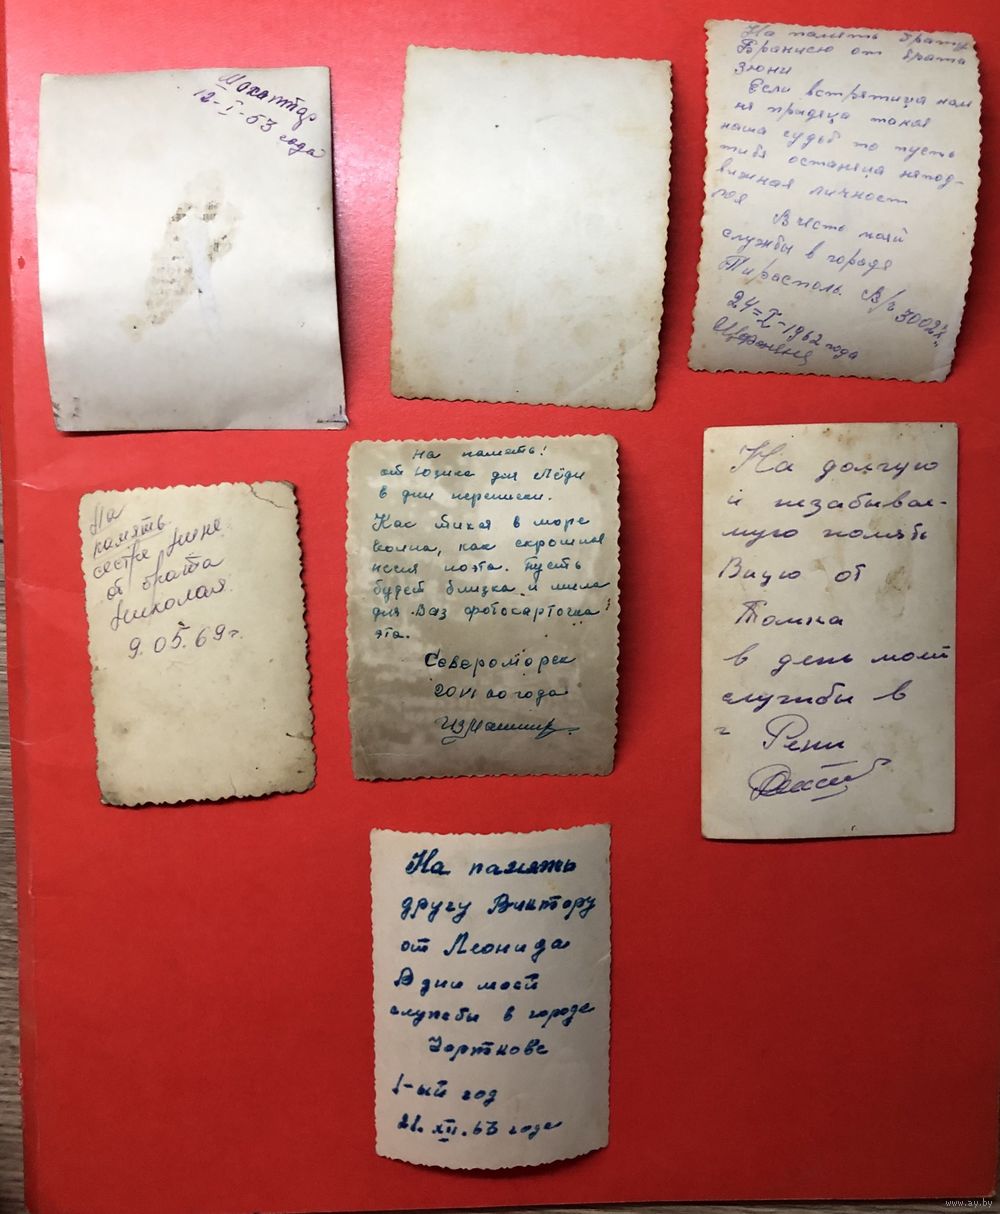 12-I-53
года
На память брату
от брата
Зюни
Если встретица нам
не придеца такая
наша судьб то пусть
тибя останеца непод-
вижная личност
моя
В честь моей
службы в городе
Тирасполь. В/ч
24=I-1962 года
На
память
сестре
от брата
Николая.
9.05.69 г.
на память!
от Юзика для Лёди
в дни переписки.
Как тихая в море
волна, как скромная
песня поэта. Пусть
будет близка и мила
для Ваз фотокарточка
эта.
Североморск
года
На долгую
и незабывае-
мую память
от
в день моей
службы в
г Рени
На память
другу Виктору
от Леонида
В дни моей
службы в городе
Чорткове
1-ый год
21.XII.63 года
www.ay.by